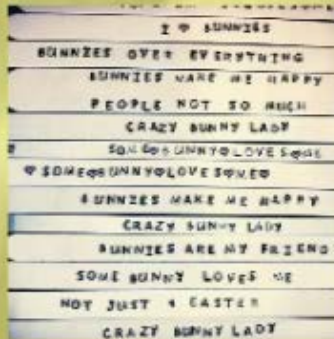 I ♡ BUNNIES
BUNNIES OVER EVERYTHING
BUNNIES MAKE ME HAPPY
PEOPLE NOT SO MUCH
CRAZY BUNNY LADY
SOME♡BUNNY♡LOVES♡ME
♡SOME♡BUNNY♡LOVES♡ME♡
BUNNIES MAKE ME HAPPY
CRAZY BUNNY LADY
BUNNIES ARE MY FRIEND
SOME BUNNY LOVES ME
NOT JUST 4 EASTER
CRAZY BUNNY LADY